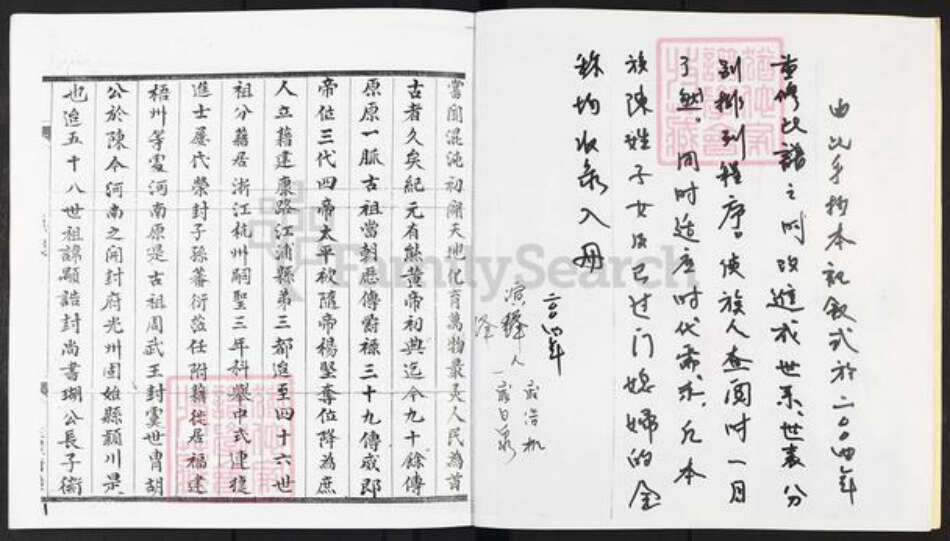 由此手抄本記叙式於二〇〇四年
重修此譜之时改进成世系、世表分
别排列程序。使族人查阅时一目
了然。同时适应时代需求，凡本
族陳姓子女及已过门媳婦的全
称均收录入册
二〇〇四年
嘗聞混沌初開天地化育萬物最灵人民為首
古者久矣紀元有熊黃帝初典迄今九十餘傳
原原一脈古祖當朝歷傳爵祿三十九傳咸郎
帝位三代四帝太平被隨帝楊堅奪位降為庶
人立籍建康路江浦縣第三都迨至四十六世
祖分籍居浙江杭州嗣聖三年科舉中式連捷
進士屢代榮封子孫蕃衍蒞任附籍徙居福建
梧州等處河南原是古祖周武王封虞世胄胡
公於陳今河南之開封府光州固始縣潁川是
也迨五十八世祖諱顯誥封尚書瑚公長子衛
FamilySearch